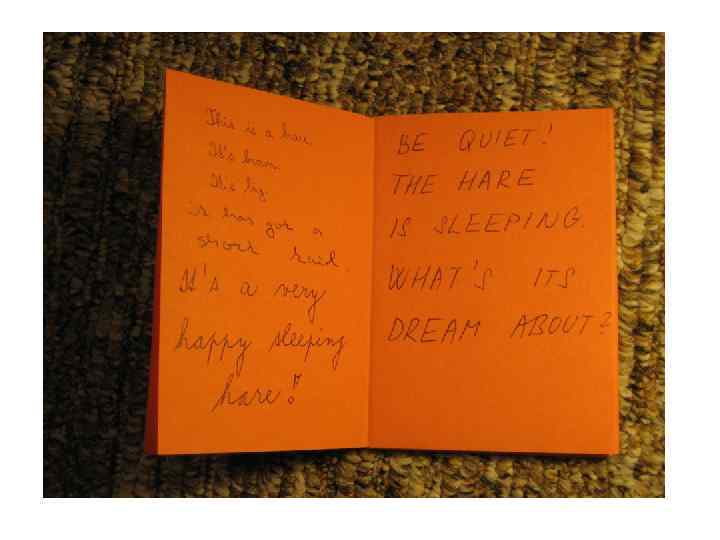 This is a hare.
It's brown.
It's big.
it has got a
short tail.
It's a very
happy sleeping
hare!
BE QUIET!
THE HARE
IS SLEEPING.
WHAT'S ITS
DREAM ABOUT?